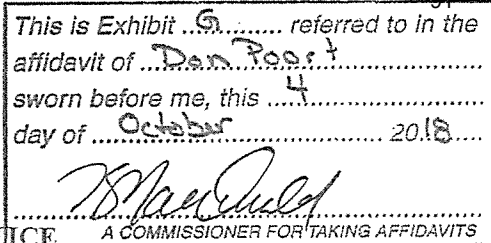 This is Exhibit G referred to in the
affidavit of Don Poort
sworn before me, this 4
day of October 2018
A COMMISSIONER FOR TAKING AFFIDAVITS